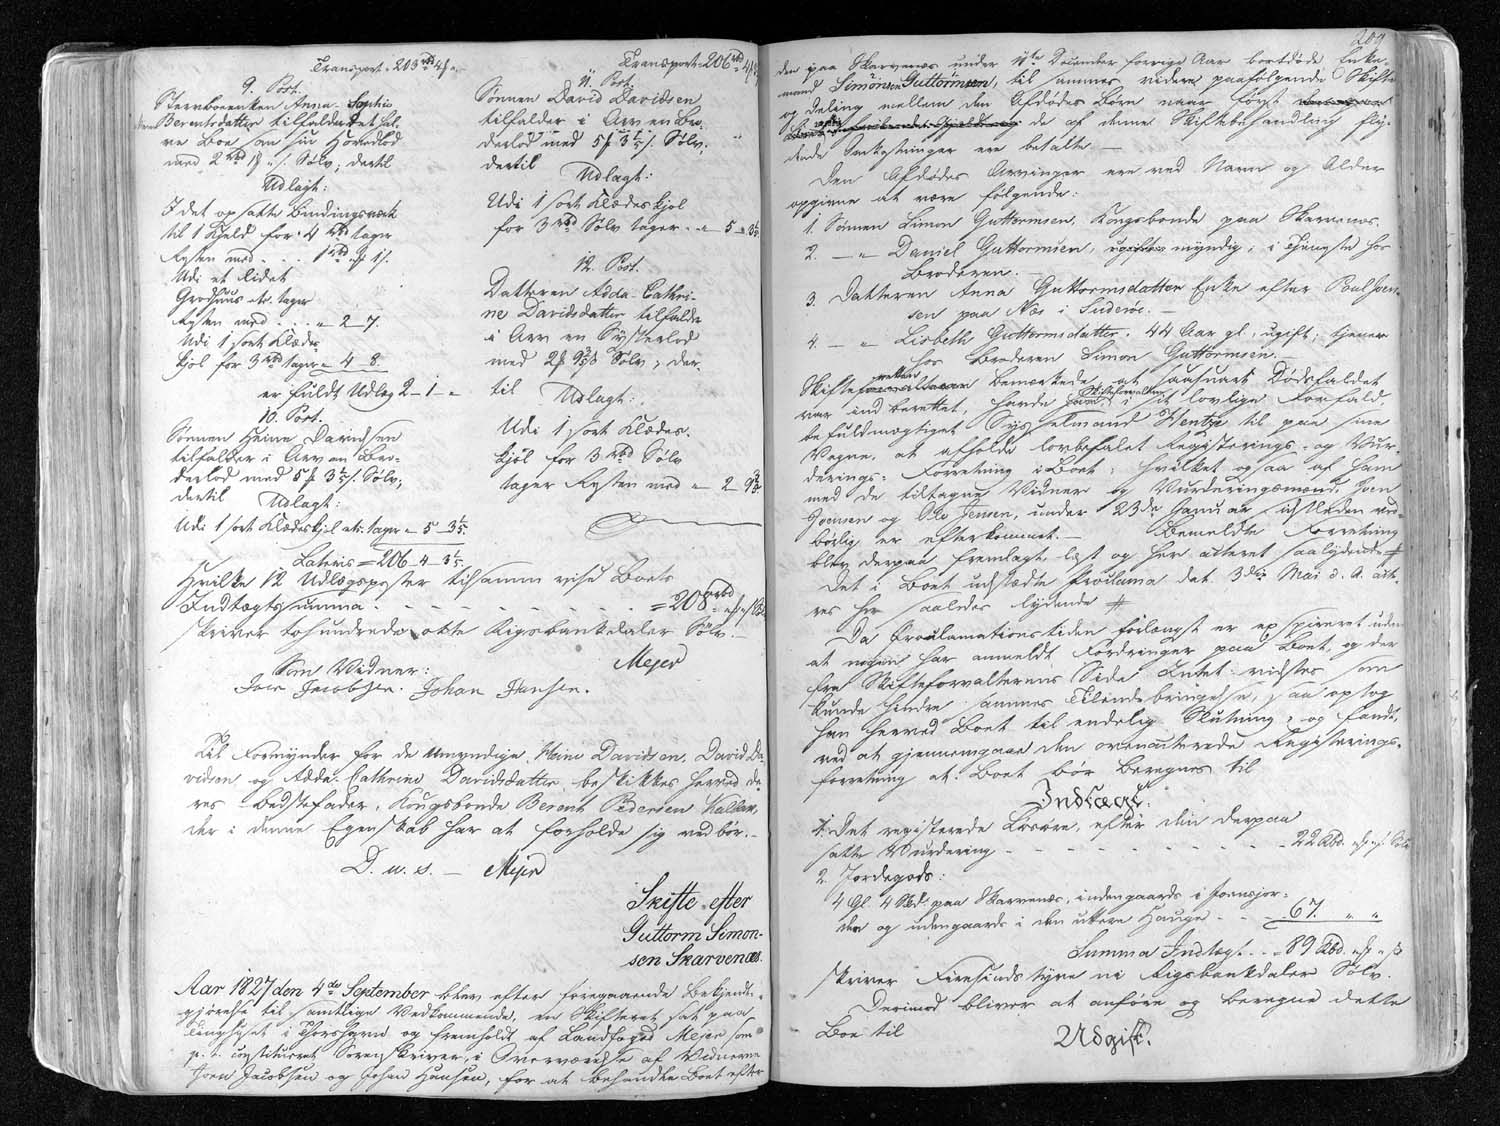 Transport = 203 rbd 4 ß
9. Post.
Stervboenken Anna Sophie
Berentsdatter tilfalder i det hele
Boe som sin Hovedlod
med 2 rbd 1 ß Sølv, dertil
Udlagt:
I det opsatte Bindingsværk
til 1 Hjeld for 4 rbd tager
Arven med . . . 1 rbd 1 ß.
Udi et Ildet
Grydhuus etc. tager
Arven med . . . „ 2 – 7.
Udi 1 sort Klædes
kjol for 3 rbd tager „ 4 8
er fuldt Udlæg 2 – 1 – „
10. Post.
Sønnen Heine Davidsen
tilfalder i Arv en Bro-
derlod med 5 ß 3 1/5 s. Sølv,
dertil
Udlagt:
Udi 1 sort Klædeskjol etc. tager „ 5 3 1/5.
Transport = 206 rbd 4 ß
11. Post.
Sønnen David Davidsen
tilfalder i Arv en Bro-
derlod med 5 ß 3 1/5 s. Sølv,
dertil
Udlagt:
Udi 1 sort Klædeskjol
for 3 rbd Sølv tager . „ – 5 – 3 1/5
12. Post.
Datteren Adda Cathri-
ne Davidsdatter tilfalder
i Arv en Søsterlod
med 2 ß 9 3/5 s Sølv, der-
til
Udlagt:
Udi 1 sort Klædes-
kjol for 3 rbd Sølv
tager Arven med „ – 2 – 9 3/5.
Lateris = 206 – 4 – 3 1/5.
Hvilke 12 Udlægsposter tilsammen viser Boets
Indtægtssumma - - - - - - - = 208 rbd
skriver tohundrede otte Rigsbankdaler Sølv. –
Mejer
Som Vidner:
Joen Jacobsen. Johan Hansen.
Til Formynder for de umyndige Heine Davidsen, David Da-
vidsen og Adda Cathrine Davidsdatter beskikkes herved de-
res Bedstefader, Kongsbonde Berent Pedersen
der i denne Egenskab har at forholde sig ved bør. –
D. u. s. – Mejer
Skifte efter
Guttorm Simon-
sen Skarvenæs.
Aar 1827 den 4de September blev efter foregaaende Bekjendt-
gjørelse til samtlige Vedkommende, en Skifteret sat paa
Tinghuset i Thorshavn og fremholdt af Landfoged Mejer som
p. t. constitueret Sorenskriver, i Overværelse af Vidnerne
Joen Jacobsen og Johan Hansen, for at behandle Boet efter
209
den paa Skarvenæs under 11te December forrige Aar bortdøde Enke-
mand Simonsen Guttormsen, til sammes videre paafølgende Skifte
og Deling mellem den Afdødes Børn naar først
de af denne Skiftebehandling fly-
dende Omkostninger ere betalte. –
Den Afdødes Arvinger ere ved Navn og Alder
opgivne at være følgende:
1. Sønnen Simon Guttormsen, Kongsbonde paa Skarvenæs.
2. – „ – Daniel Guttormsen, ugift myndig, i Tjeneste hos
Broderen. –
3. Datteren Anna Guttormsdatter Enke efter Poul Joen-
sen paa Næs i Suderøe. –
4. – „ Lisbeth Guttormsdatter. 44 Aar gl., ugift, tjener
hos Broderen Simon Guttormsen. –
Skifteretten bemærkede, at saasnart Dødsfaldet
var indberettet, havde Skifteforvalteren i sit lovlige Forfald,
befuldmægtiget Sysselmand Wentze til paa sine
Vegne, at afholde lovbefalet Registerings- og Vur-
derings-Forretning i Boet, hvilket ogsaa af ham
med de tiltagne Vidner og Vurderingsmænd, Joen
Joensen og Ole Jensen, under 23de Januar sidstleden
børlig er efterkommet. – Bemeldte Forretning
blev derpaa fremlagt læst og her acteret saalydende #
Det i Boet udstædte Proclama dat. 3die Mai d. A. acte-
res her saaledes lydende #
Da Proclamationstiden forlængst er exspireret uden
at nogen har anmeldt Fordringer paa Boet, og der
fra Skifteforvalterens Side Intet vidstes som
kunde hindre sammes Tilendebringelse, saa optog
han herved Boet til endelig Slutning, og fandt,
ved at gjennemgaae den ovenacterede Registerings-
forretning at Boet bør beregnes til
Indtægt.
1. Det registerede Løsøre, efter den derpaa
satte Vurdering - - - - - - - 22 Rbd. „ ß „ s. Sølv
2. Jordegods:
4 Gl. 4 Skd. paa Skarvenæs, indengaards i Joensjor-
den og udengaards i den uttere Hauge - - - 67. „ „
Summa Indtægt . . „ 89 Rbd. „ ß „ s
skriver Firesindstyve ni Rigsbankdaler Sølv.
Derimod bliver at anføre og beregne dette
Boe til
Udgift.